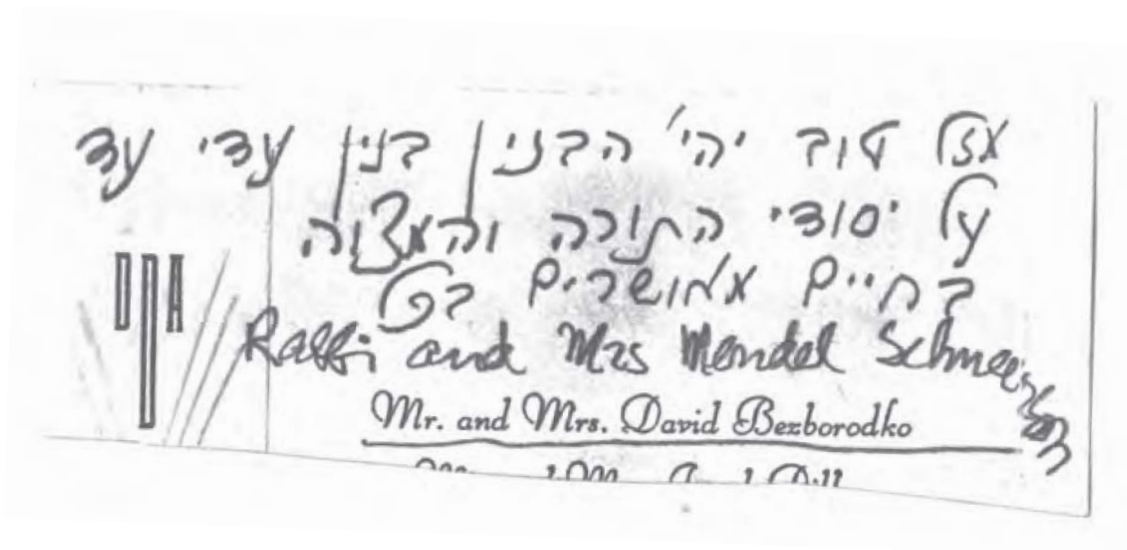 מזל טוב יהי' הבנין בנין עדי עד
על יסודי התורה והמצוה
בחיים מאושרים בכל
Rabbi and Mrs Mendel Schneerson
Mr. and Mrs. David Bezborodko